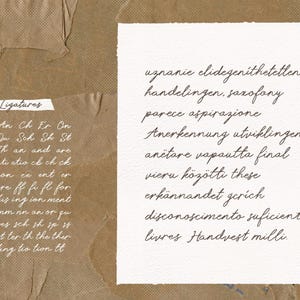 Ligatures
An Ch Er On
Sch Sh St
Th an and are
ck ch ck
on ee ent er
re ff fi fl for
ing ion ment
mm nn an or
res sch sh sp ss
st ter th the ther
ing tio tion tt
uznanie elidegeníthetetlen
handelingen, saxofony
parece aspirazione
Anerkennung utviklingen
anētare vapautta final
vieru közötti these
erkännandet gcrích
disconoscimento suficient
livres Handvest milli